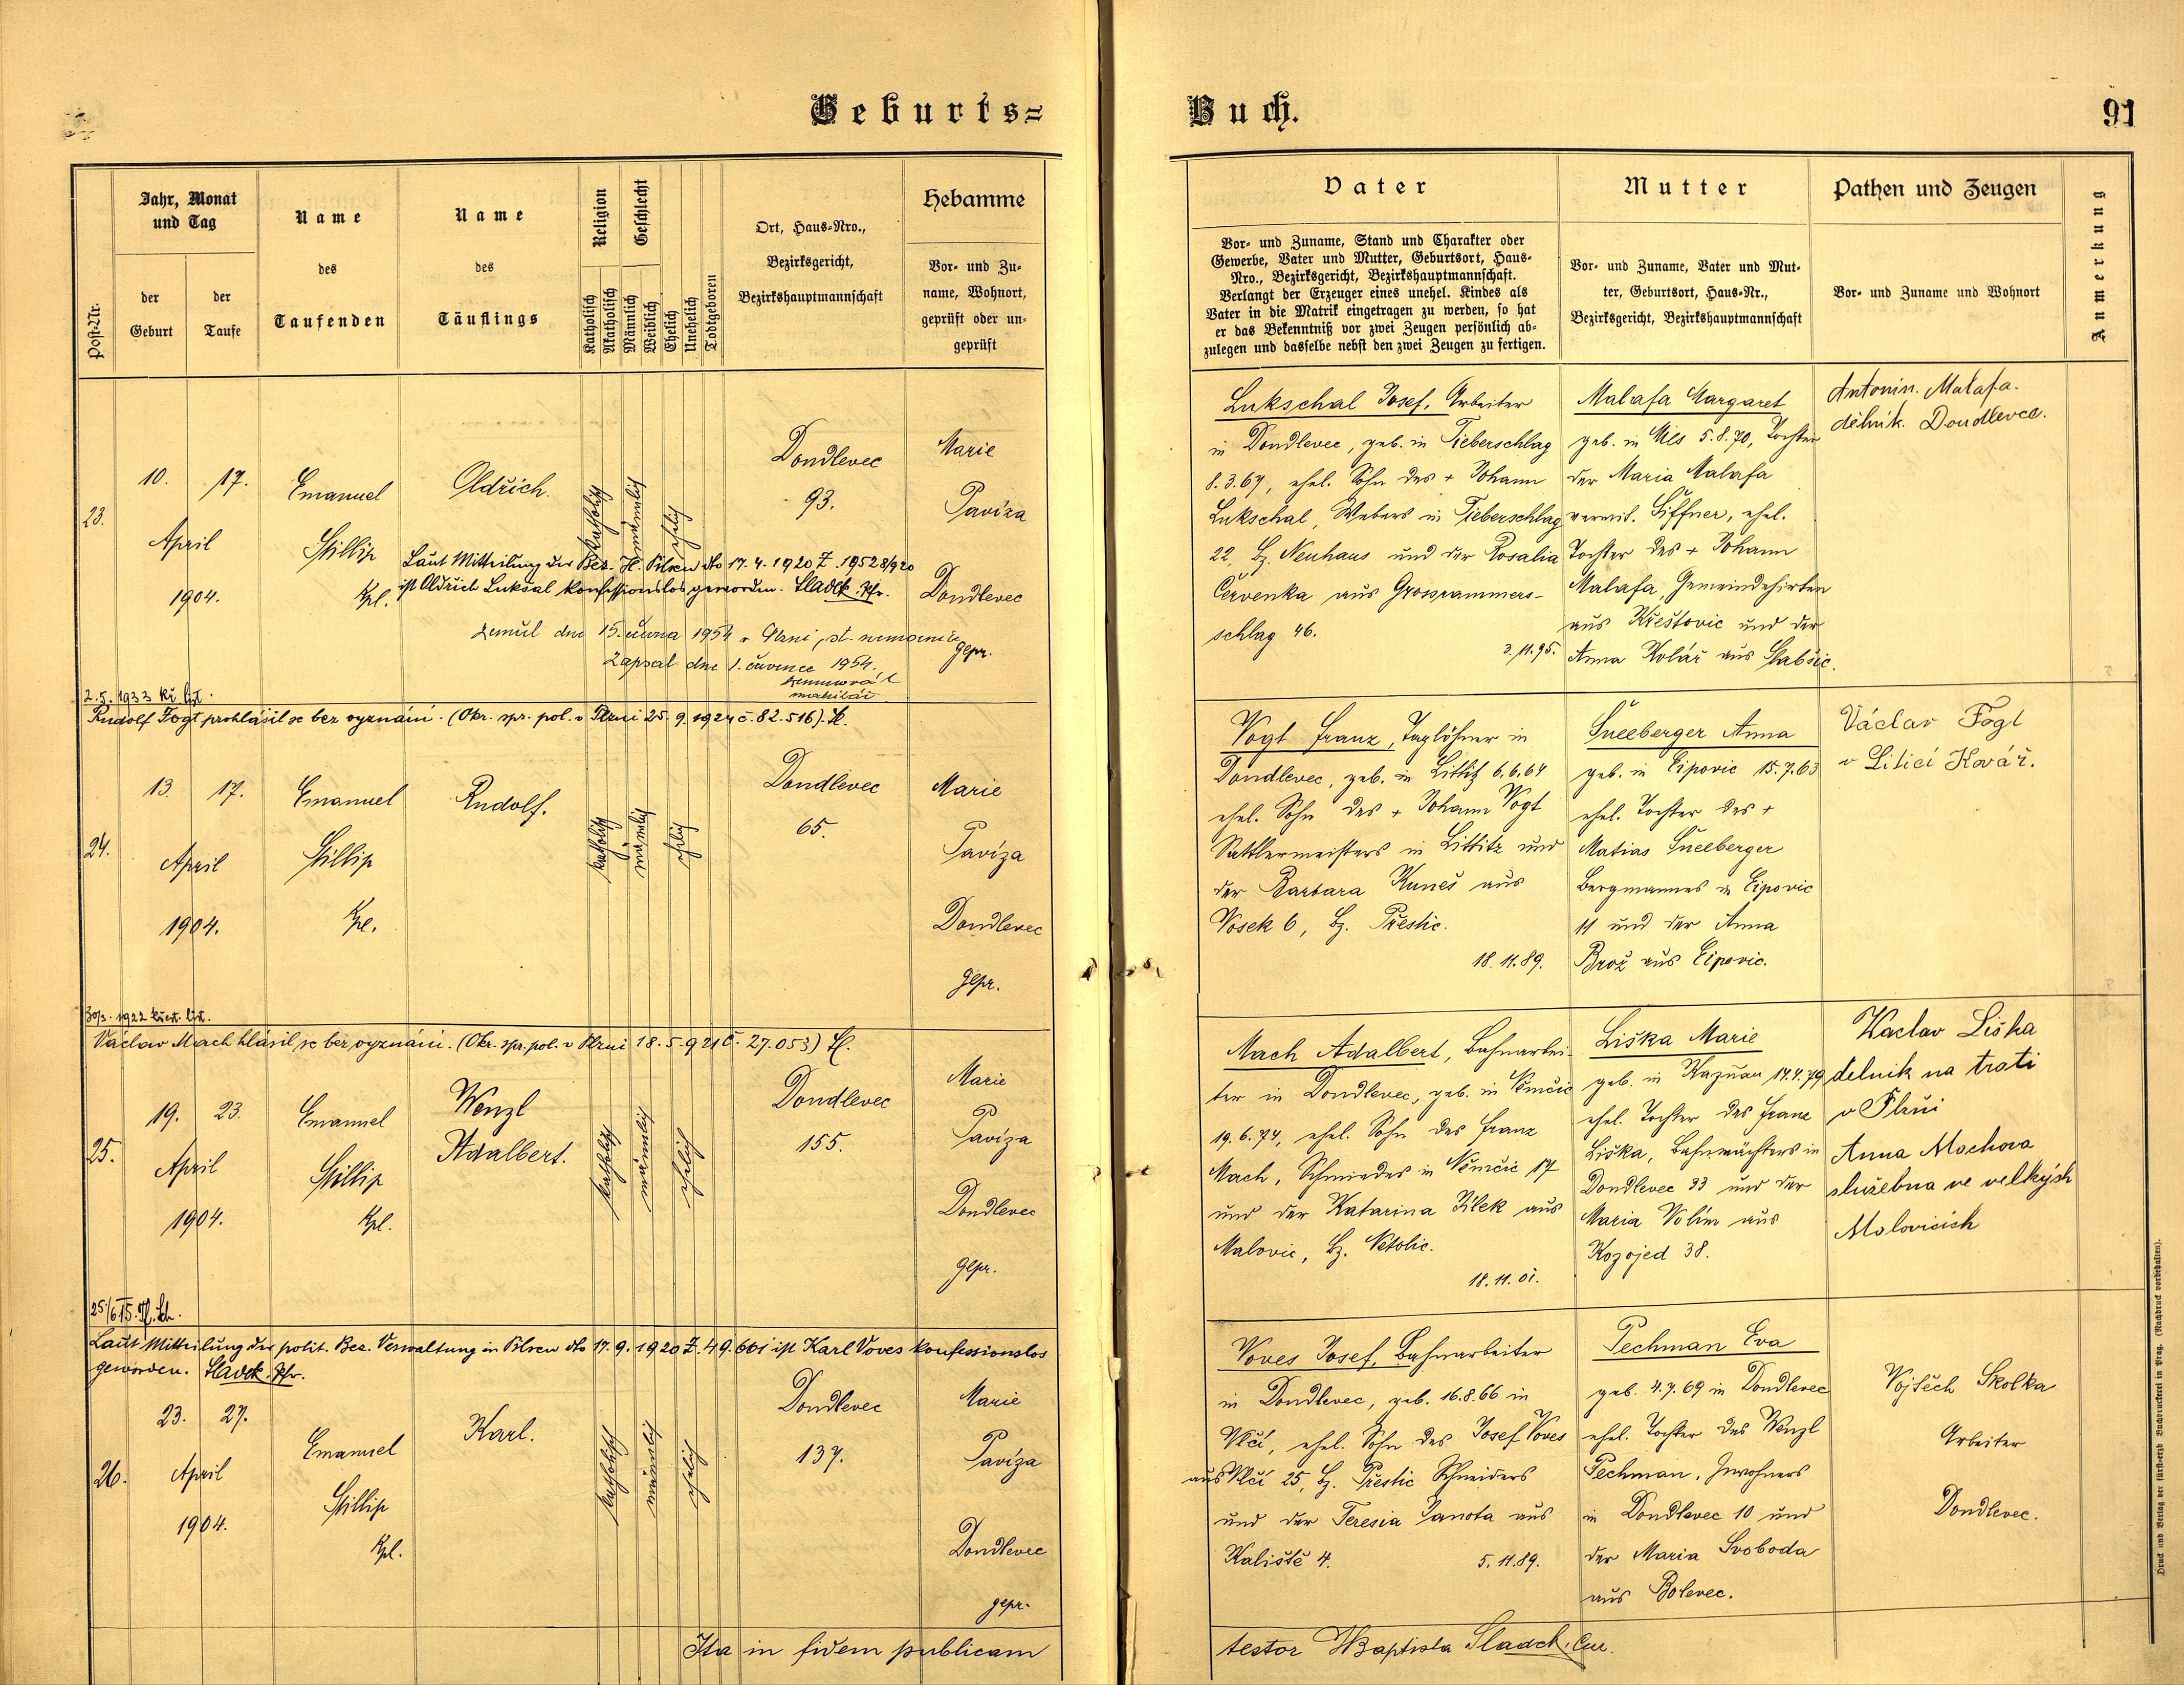 Geburts=
Buch.
91
Post-Nr.
Jahr, Monat
und Tag
der
Geburt
der
Taufe
Name
des
Taufenden
Name
des
Täuflings
Religion
Katholisch
Akatholisch
Geschlecht
Männlich
Weiblich
Ehelich
Unehelich
Todtgeboren
Ort, Haus-Nro.,
Bezirksgericht,
Bezirkshauptmannschaft
Hebamme
Vor- und Zu-
name, Wohnort,
geprüft oder un-
geprüft
Vater
Vor- und Zuname, Stand und Charakter oder
Gewerbe, Vater und Mutter, Geburtsort, Haus-
Nro., Bezirksgericht, Bezirkshauptmannschaft.
Verlangt der Erzeuger eines unehel. Kindes als
Vater in die Matrik eingetragen zu werden, so hat
er das Bekenntniß vor zwei Zeugen persönlich ab-
zulegen und dasselbe nebst den zwei Zeugen zu fertigen.
Mutter
Vor- und Zuname, Vater und Mut-
ter, Geburtsort, Haus-Nr.,
Bezirksgericht, Bezirkshauptmannschaft
Pathen und Zeugen
Vor- und Zuname und Wohnort
Anmerkung
23.
10.
17.
April
1904.
Emanuel
Stillip
Kpl.
Oldřich.
katholisch
männlich
ehelich
Dondlevec
93.
Marie
Paviza
Dondlevec
gepr.
Laut Mitteilung der Bez. H. Pilsen dto 17.4.1920 Z. 19528/920
ist Oldřich Luksal konfessionslos geworden. Sladek. Pfr.
zemřel dne 15. června 1954 v Plzni, st. nemocnice
Zapsal dne 1. července 1954.
Lukschal Josef, Arbeiter
in Dondlevec, geb. in Tieberschlag
8.3.67, ehel. Sohn des + Johann
Lukschal, Webers in Tieberschlag
22, Bz. Neuhaus und der Rosalia
Červenka aus Grossrammers-
schlag 46.
3.11.95.
Malafa Margaret
geb. in Mls 5.8.70, Tochter
der Maria Malafa
verwit. Šiffner, ehel.
Tochter des + Johann
Malafa, Gemeindehirten
aus Křeštovic und der
Anna Kolář aus Slabšic.
Antonin. Malafa.
dělník. Doudlevce.
2.5.1933 kř. list.
Rudolf Fogt prohlásil se bez vyznání. (Okr. spr. pol. v Plzni 25.9.1924 č. 82.516). Sl.
24.
13.
17.
April
1904.
Emanuel
Stillip
Kpl.
Rudolf.
katholisch
männlich
ehelich
Dondlevec
65.
Marie
Paviza
Dondlevec
gepr.
Vogt Franz, Taglöhner in
Dondlevec, geb. in Littitz 6.6.64
ehel. Sohn des + Johann Vogt
Sattlermeisters in Littitz und
der Barbara Kuneš aus
Vosek 6, Bz. Přestic.
18.11.89.
Šneeberger Anna
geb. in Lipovic 15.7.63
ehel. Tochter des +
Matias Šneeberger
Bergmannes in Lipovic
11 und der Anna
Brož aus Lipovic.
Václav Fogl
v Liticí Kovář.
30/3. 1922 křest. list.
Václav Mach hlásil se bez vyznání. (Okr. spr. pol. v Plzni 18.5.921 č. 27.053) Sl.
25.
19.
23.
April
1904.
Emanuel
Stillip
Kpl.
Wenzl
Adalbert.
katholisch
männlich
ehelich
Dondlevec
155.
Marie
Paviza
Dondlevec
gepr.
Mach Adalbert, Bahnarbei-
ter in Dondlevec, geb. in Němčic
19.6.74, ehel. Sohn des Franz
Mach, Schmiedes in Němčic 17
und der Katarina Bílek aus
Malovic, Bz. Netolic.
18.11.01.
Liška Marie
geb. in Kaznau 14.4.79
ehel. Tochter des Franz
Liška, Bahnwächters in
Dondlevec 33 und der
Maria Volím aus
Kozojed 38.
Waclav Liška
delnik na trati
v Plzni
Anna Machova
služebna ve velkých
Malovicich
Laut Mitteilung der polit. Bez. Verwaltung in Pilsen dto 17.9.1920 Z. 49.661 ist Karl Voves konfessionslos
geworden. Sladek. Pfr.
26.
23.
27.
April
1904.
Emanuel
Stillip
Kpl.
Karl.
katholisch
männlich
ehelich
Dondlevec
137.
Marie
Paviza
Dondlevec
gepr.
Voves Josef, Bahnarbeiter
in Dondlevec, geb. 16.8.66 in
Vlčí, ehel. Sohn des Josef Voves
aus Vlčí 25, Bz. Přestic Schneiders
und der Teresia Janota aus
Kaliště 4.
5.11.89.
Pechman Eva
geb. 4.7.69 in Dondlevec
ehel. Tochter des Wenzl
Pechman, Inwohners
in Dondlevec 10 und
der Maria Svoboda
aus Bolevec.
Vojtěch Skolka
Arbeiter
Dondlevec.
Ita in fidem publicam
testor J Baptista Sladek, Cur.
Druck und Verlag der fürsterzb Buchdruckerei in Prag. (Nachdruck vorbehalten).